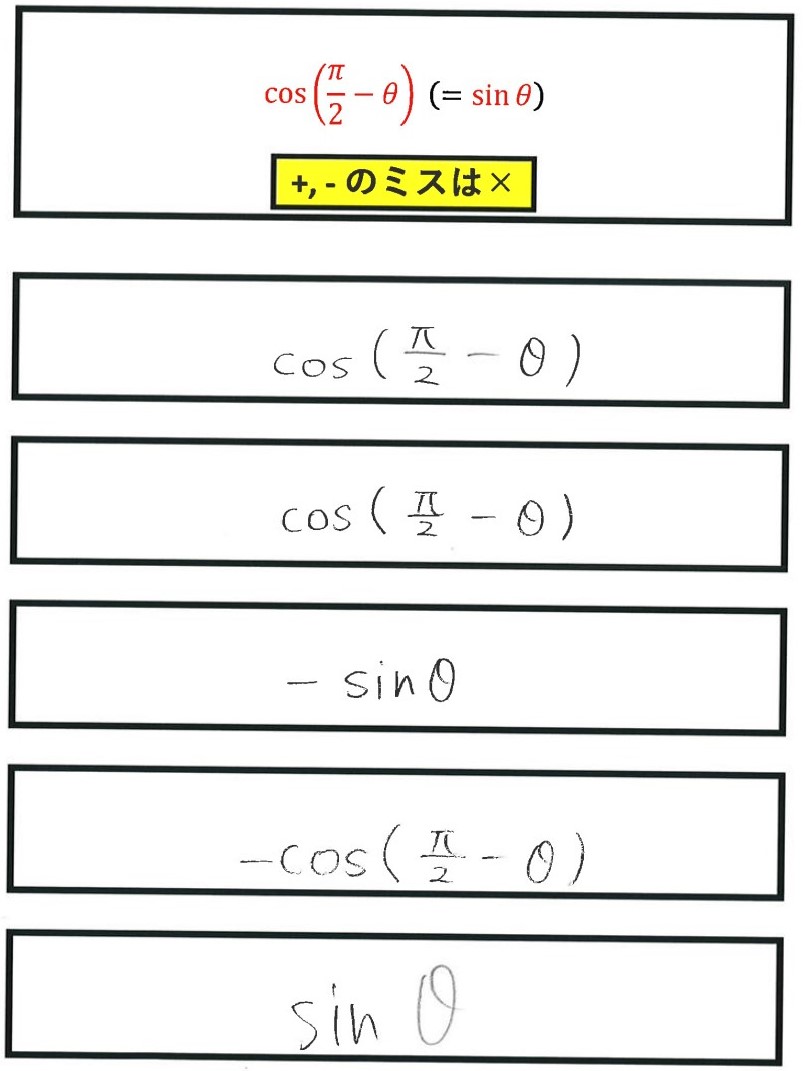 cos(π/2 − θ) (= sin θ)
+, - のミスは×
cos(π/2 − θ)
cos(π/2 − θ)
− sinθ
−cos(π/2 − θ)
sin θ